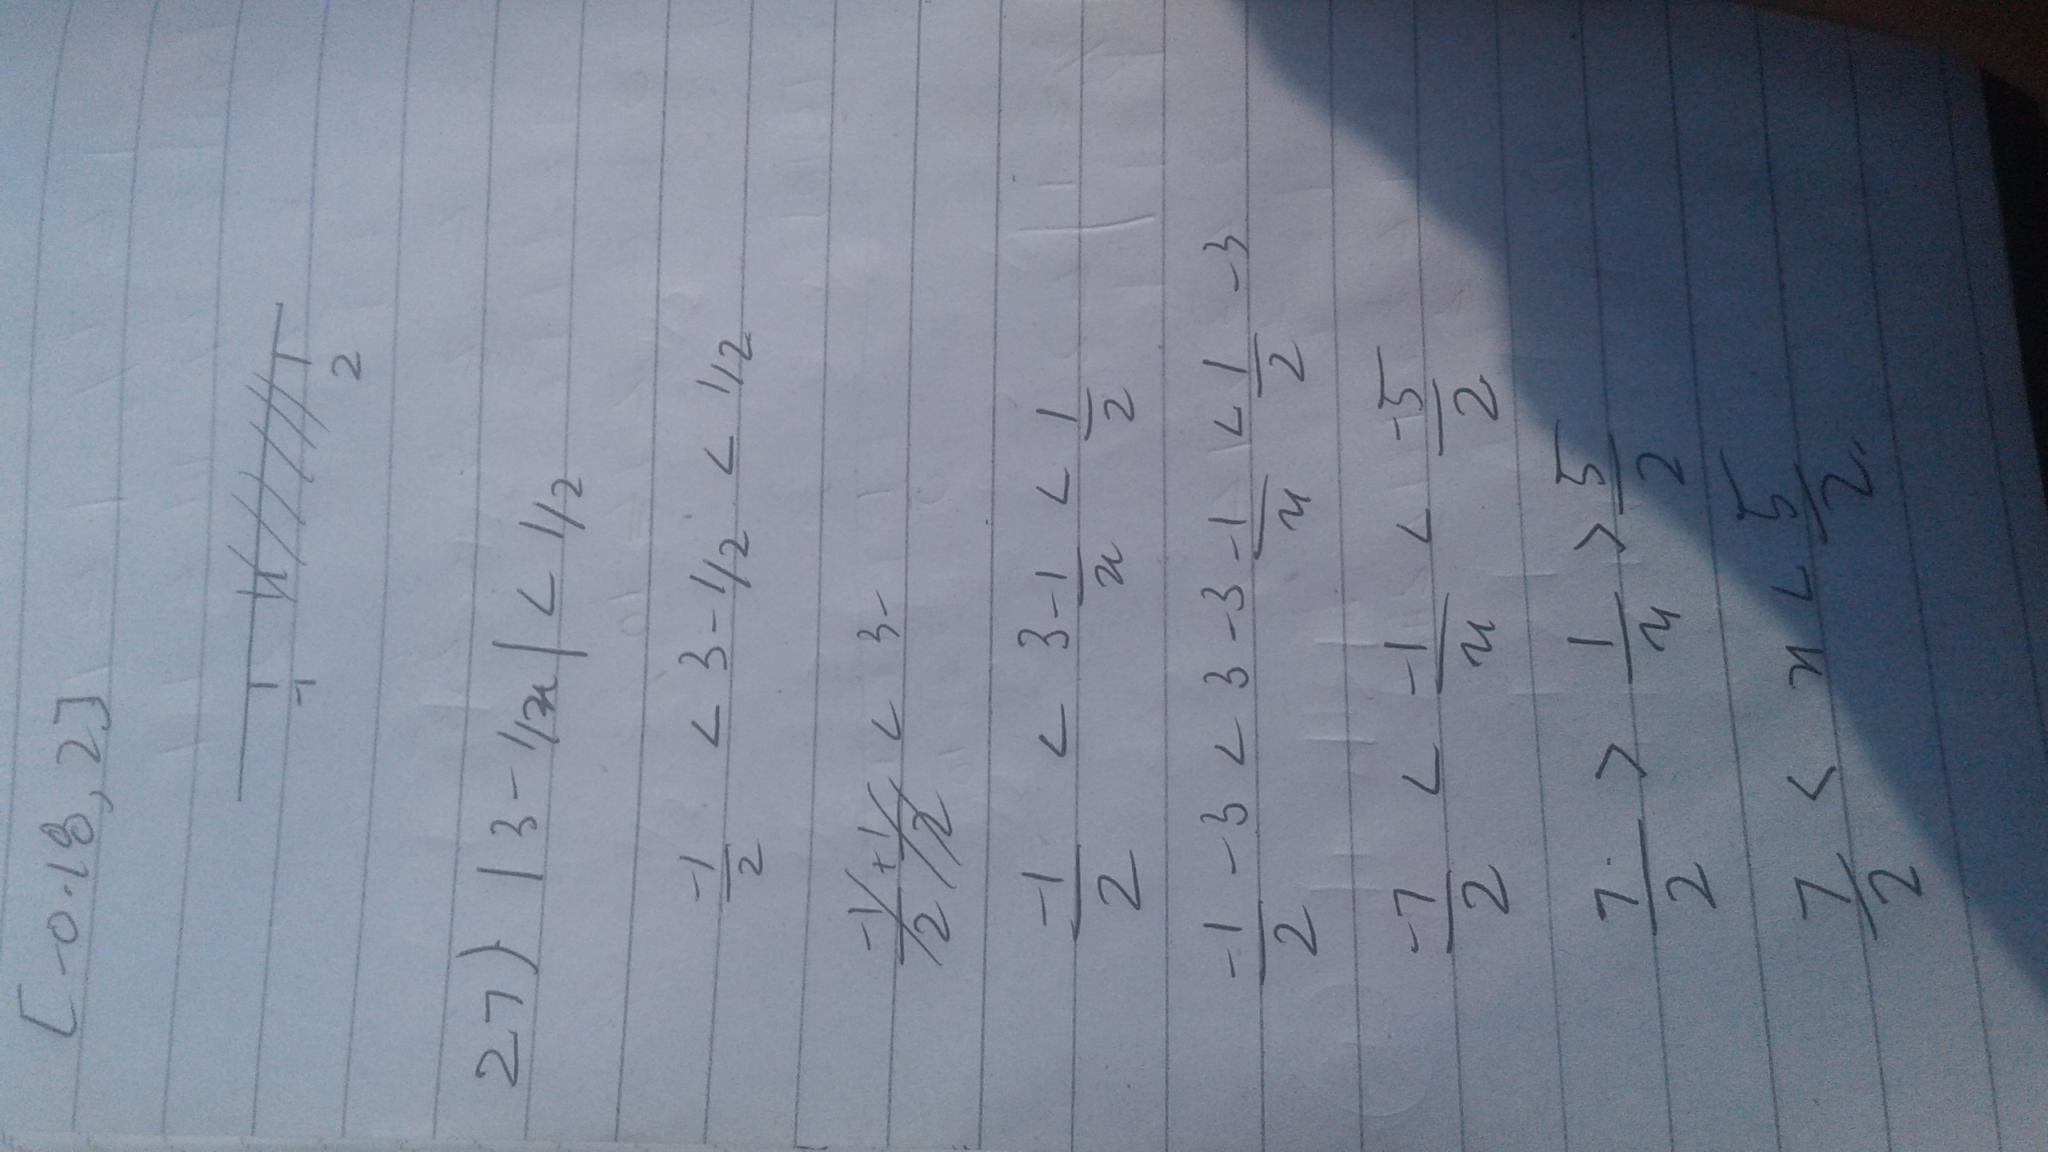 [-0.18, 2]
-1 2
27) |3-1/x| < 1/2
-1/2 < 3-1/2 < 1/2
-1/2 +1/2 < 3-
-1/2 < 3-1/x < 1/2
-1/2 -3 < 3-3 -1/x < 1/2 -3
-7/2 < -1/x < -5/2
7/2 > 1/x > 5/2
7/2 < x < 5/2